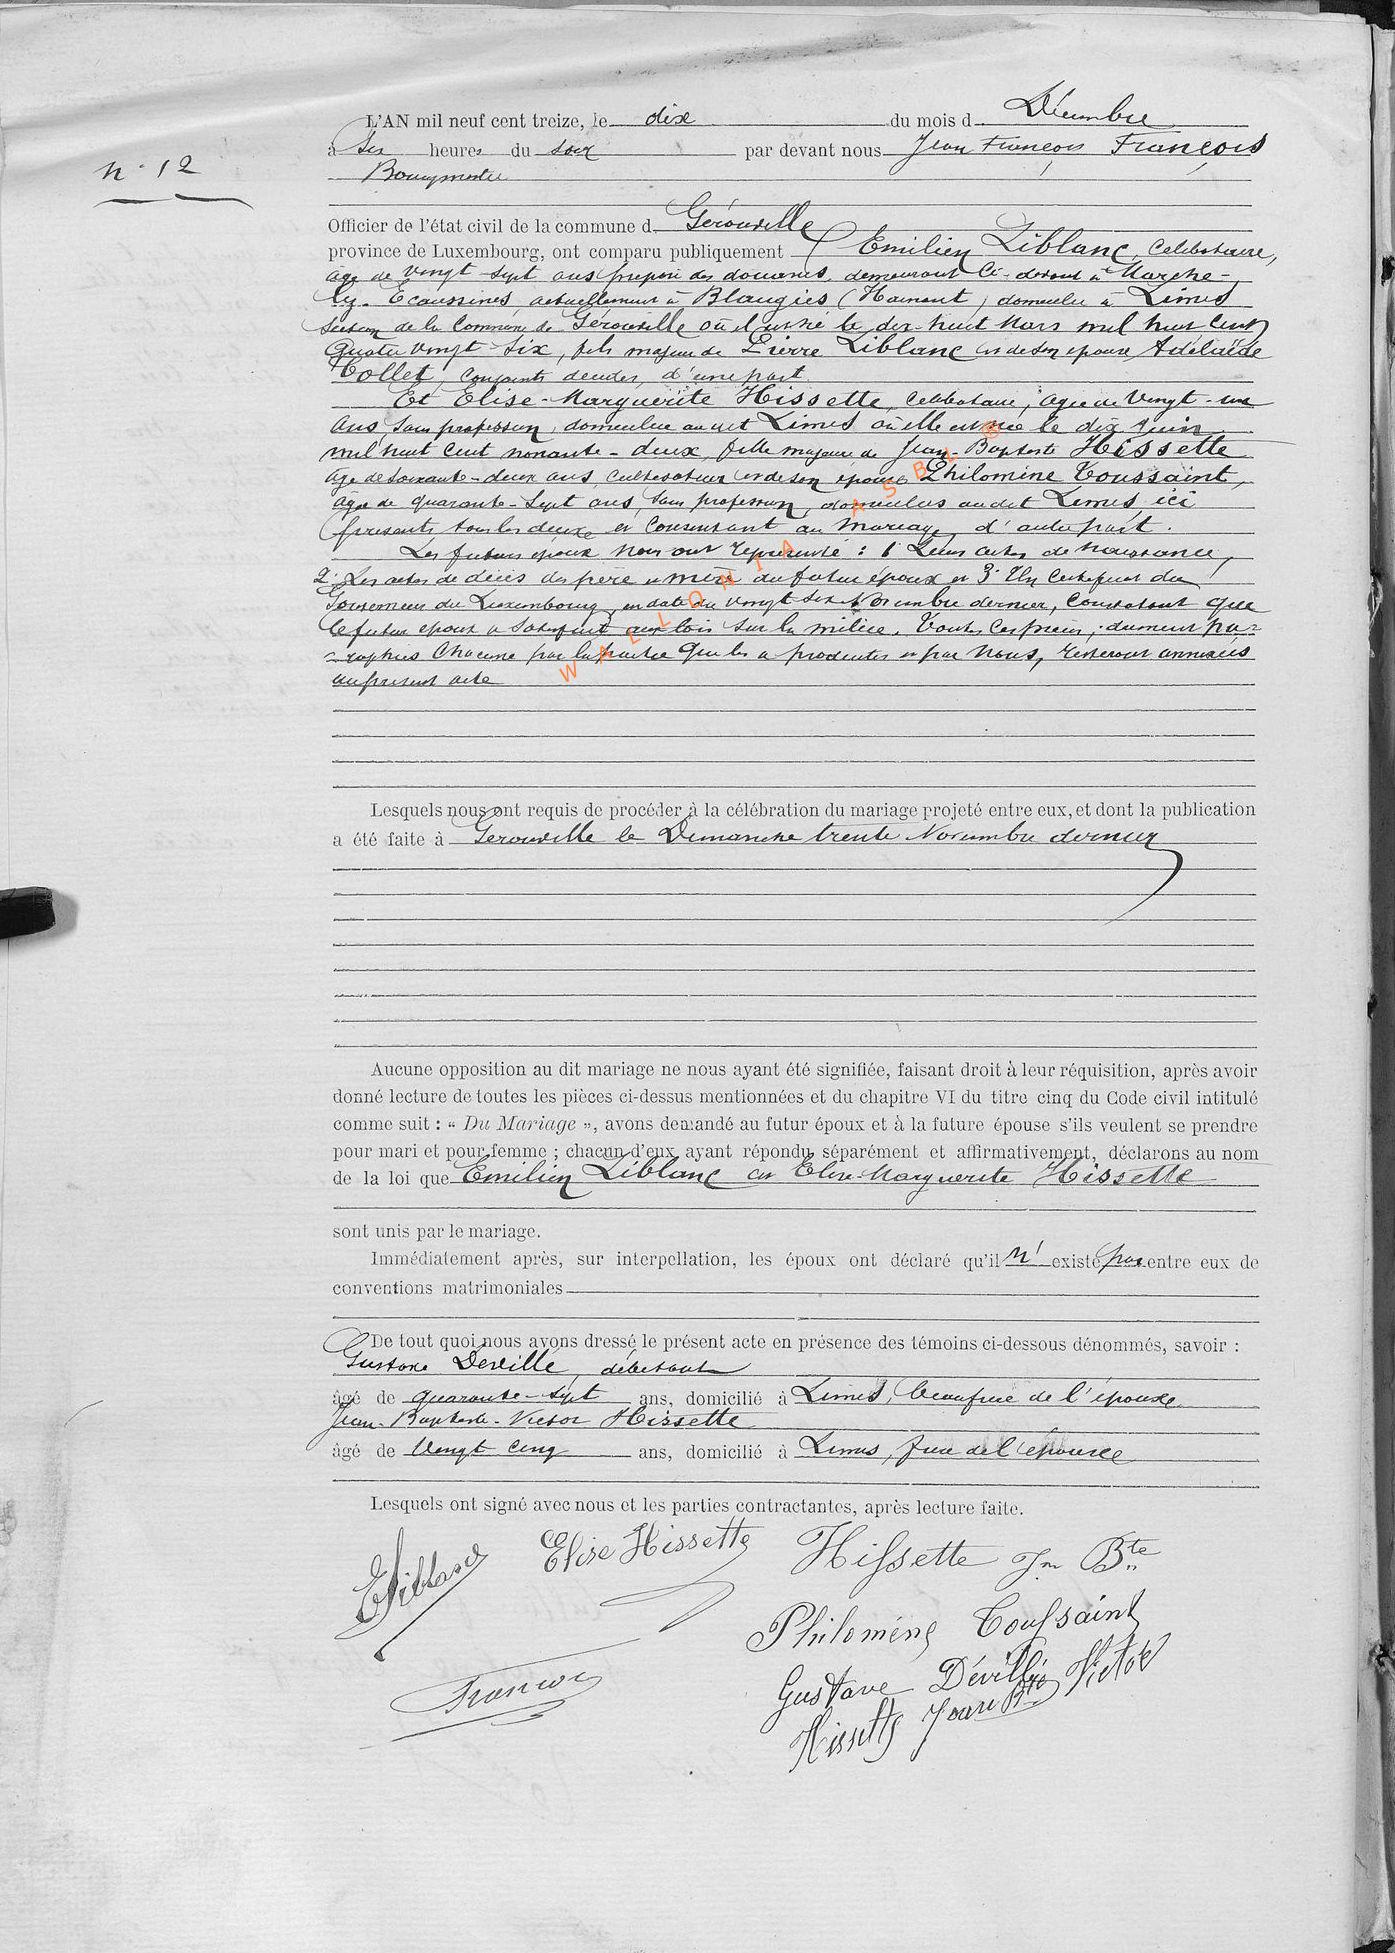 L'AN mil neuf cent treize, le dix du mois d Décembre
n° 12
à six heures du soir par devant nous Jean François François,
Bourgmestre
Officier de l'état civil de la commune d Gérouville
province de Luxembourg, ont comparu publiquement Emilien Liblanc, célibataire,
âgé de vingt-sept ans préposé des douanes, demeurant ci-devant à Marche-
lez-Ecaussines actuellement à Blaugies (Hainaut) domicilié à Limes
section de la commune de Gérouville où il est né le dix-huit Mars mil huit cent
quatre vingt-six, fils majeur de Pierre Liblanc et de son épouse Adélaïde
Collet, conjoints décédés, d'une part.
Et Elise-Marguerite Hissette, célibataire, âgée de vingt-un
ans, sans profession, domiciliée au dit Limes où elle est née le dix juin
mil huit cent nonante-deux, fille majeure de Jean-Baptiste Hissette
âgé de soixante-deux ans, cultivateur et de son épouse Philomène Toussaint,
âgée de quarante-sept ans, sans profession, domiciliés au dit Limes, ici
présents tous les deux et consentant au mariage, d'autre part.
Les futurs époux nous ont représenté : 1° Leurs actes de naissance,
2° Les actes de décès des père et mère du futur époux et 3° Un certificat du
Gouverneur du Luxembourg, en date du vingt-six Novembre dernier, constatant que
le futur époux a satisfait aux lois sur la milice. Toutes ces pièces, dûment pa-
raphées chacune par la partie qui les a produites et par Nous, resteront annexées
au présent acte
WALLONIA ASBL ®
Lesquels nous ont requis de procéder à la célébration du mariage projeté entre eux, et dont la publication
a été faite à Gérouville le Dimanche trente Novembre dernier
Aucune opposition au dit mariage ne nous ayant été signifiée, faisant droit à leur réquisition, après avoir
donné lecture de toutes les pièces ci-dessus mentionnées et du chapitre VI du titre cinq du Code civil intitulé
comme suit : « Du Mariage », avons demandé au futur époux et à la future épouse s'ils veulent se prendre
pour mari et pour femme ; chacun d'eux ayant répondu séparément et affirmativement, déclarons au nom
de la loi que Emilien Liblanc et Elise-Marguerite Hissette
sont unis par le mariage.
Immédiatement après, sur interpellation, les époux ont déclaré qu'il n' existe pas entre eux de
conventions matrimoniales
De tout quoi nous avons dressé le présent acte en présence des témoins ci-dessous dénommés, savoir :
Gustave Dévillé, débitant
âgé de quarante-sept ans, domicilié à Limes, beau frère de l'épouse
Jean-Baptiste-Victor Hissette
âgé de vingt cinq ans, domicilié à Limes, frère de l'épouse
Lesquels ont signé avec nous et les parties contractantes, après lecture faite.
E Liblanc Elise Hissette Hissette Jn Bte
Philomène Toussaint
François Gustave Dévillé
Hissette Jean Bte Victor